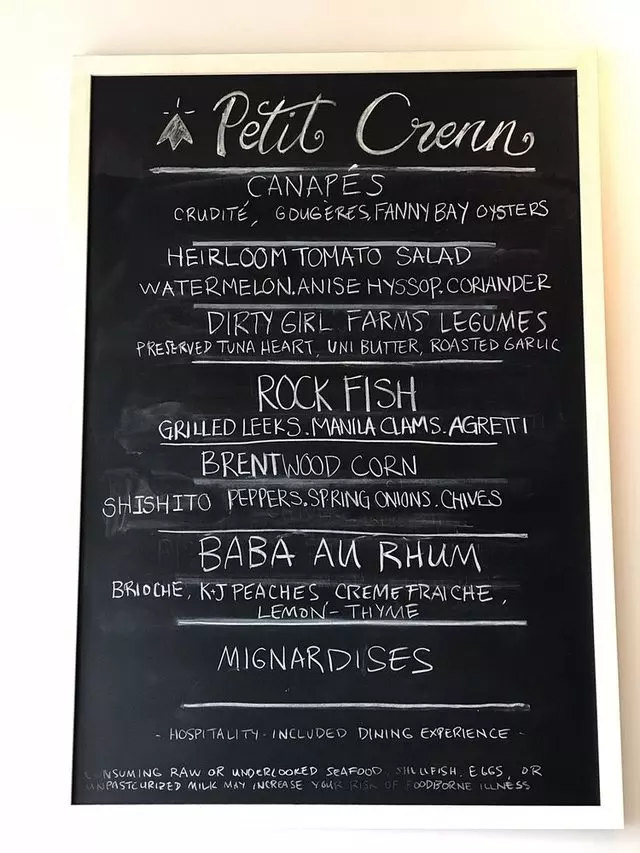 Petit Crenn
CANAPÉS
CRUDITÉ, GOUGÈRES, FANNY BAY OYSTERS
HEIRLOOM TOMATO SALAD
WATERMELON. ANISE HYSSOP. CORIANDER
DIRTY GIRL FARMS LEGUMES
PRESERVED TUNA HEART, UNI BUTTER, ROASTED GARLIC
ROCK FISH
GRILLED LEEKS. MANILA CLAMS. AGRETTI
BRENTWOOD CORN
SHISHITO PEPPERS. SPRING ONIONS. CHIVES
BABA AU RHUM
BRIOCHE, K+J PEACHES, CREME FRAICHE,
LEMON-THYME
MIGNARDISES
- HOSPITALITY-INCLUDED DINING EXPERIENCE -
NSUMING RAW OR UNDERCOOKED SEAFOOD, SHELLFISH, EGGS, OR
UNPASTEURIZED MILK MAY INCREASE YOUR RISK OF FOODBORNE ILLNESS